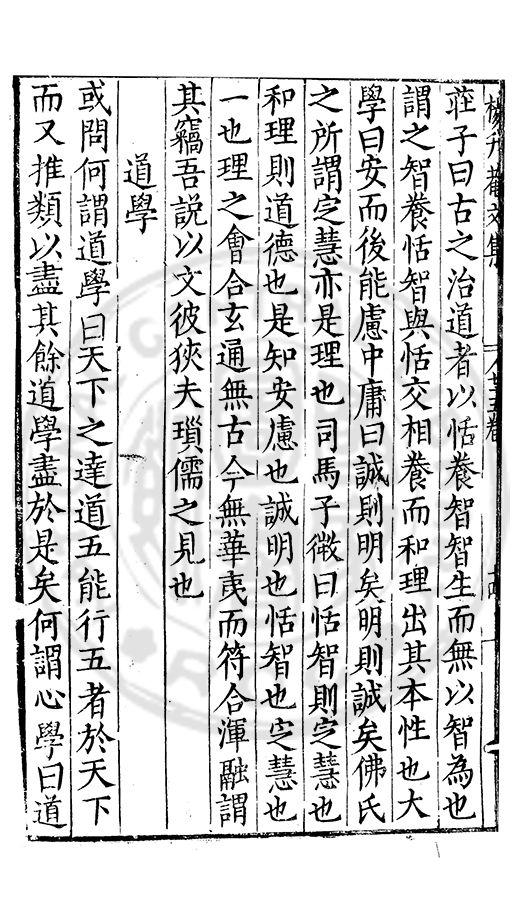 楊升菴文集
莊子曰古之治道者以恬養智智生而無以智為也
謂之智養恬智與恬交相養而和理出其本性也大
學曰安而後能慮中庸曰誠則明矣明則誠矣佛氏
之所謂定慧亦是理也司馬子微曰恬智則定慧也
和理則道德也是知安慮也誠明也恬智也定慧也
一也理之會合玄通無古今無華夷而符合渾融謂
其竊吾說以文彼狹夫瑣儒之見也
道學
或問何謂道學曰天下之達道五能行五者於天下
而又推類以盡其餘道學盡於是矣何謂心學曰道